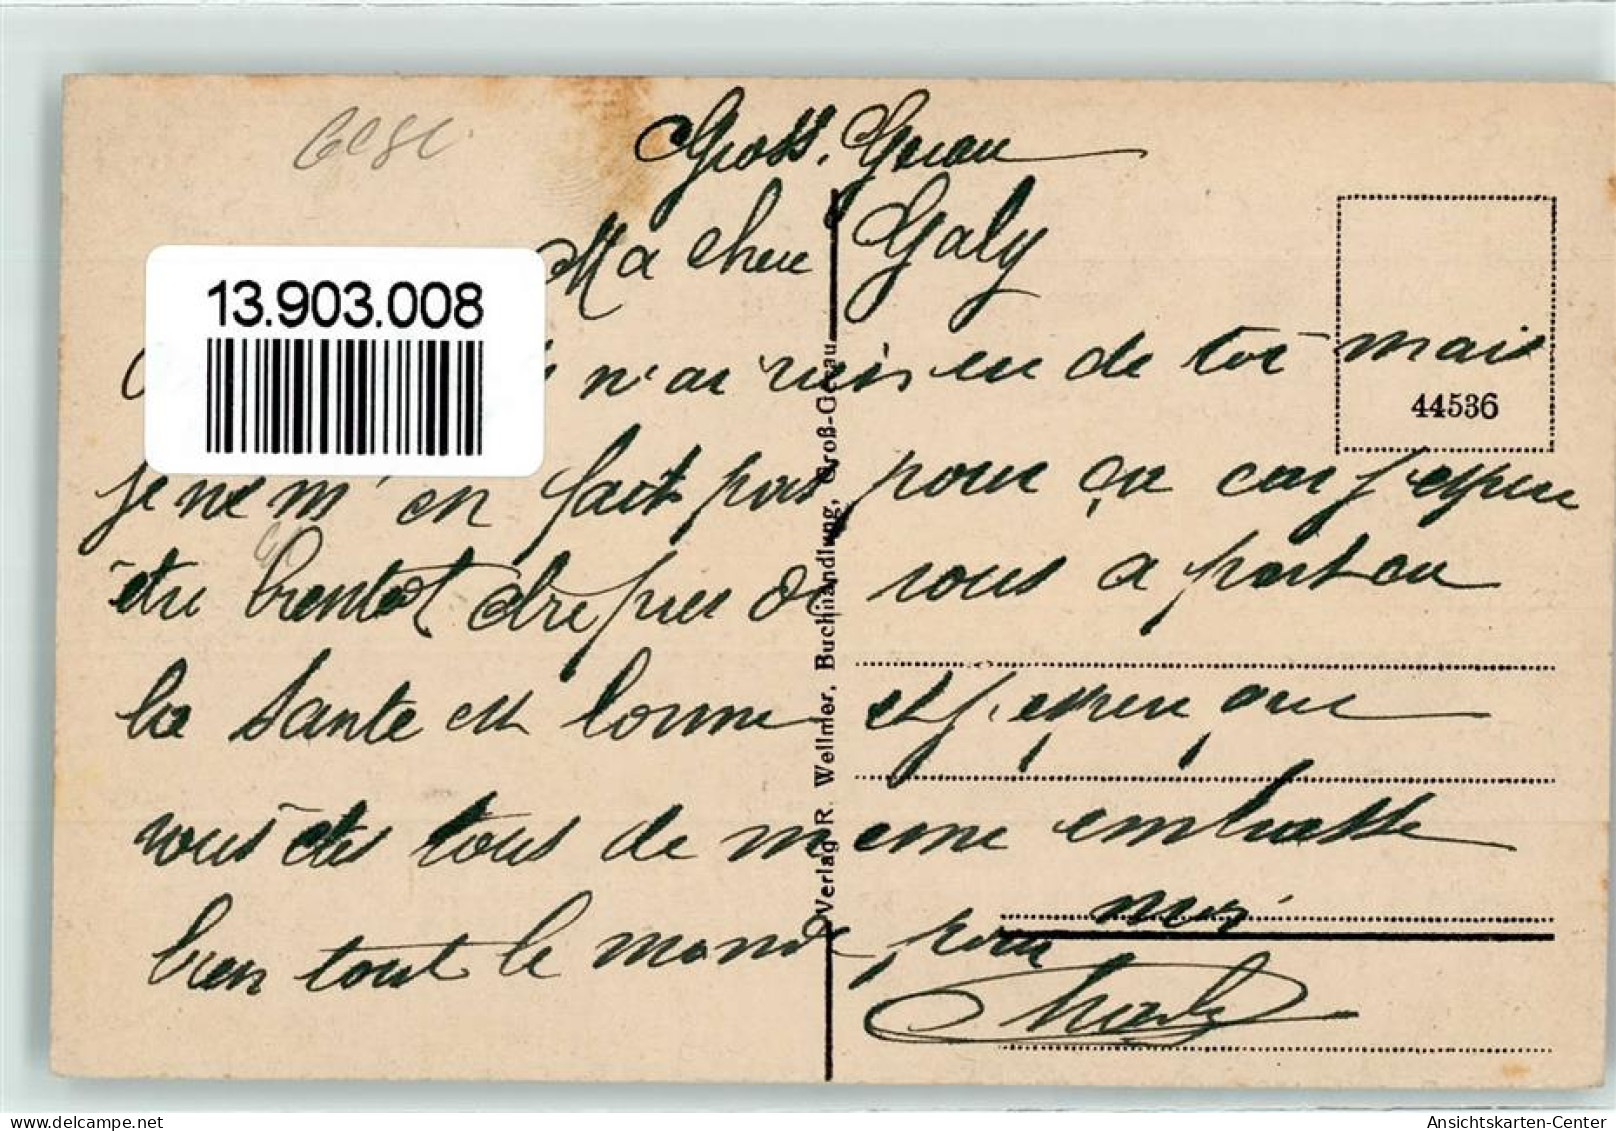 Gross. Gerau
Ma chere Galy
13.903.008
n'ai rien eu de toi mais
44536
je ne m'en fait pas pour ça car j'espere
être bientot etre pres de vous a part ca
la Santé est bonne et j'espere que
vous êtes tous de meme embrasse
bien tout le monde pour moi
Charly
Verlag R. Wellmer, Buchhandlung, Groß-Gerau
Ansichtskarten-Center